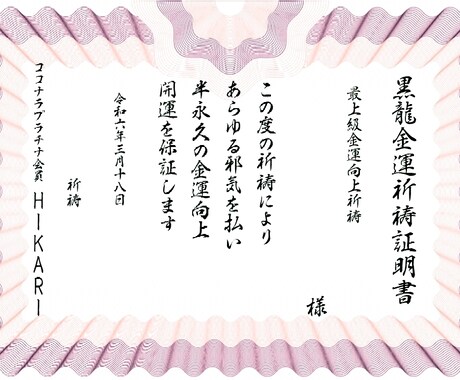 黒龍金運祈祷証明書
最上級金運向上祈祷
様
この度の祈祷により
あらゆる邪気を払い
半永久の金運向上
開運を保証します
令和六年三月十八日
祈祷
ココナラプラチナ会員 HIKARI